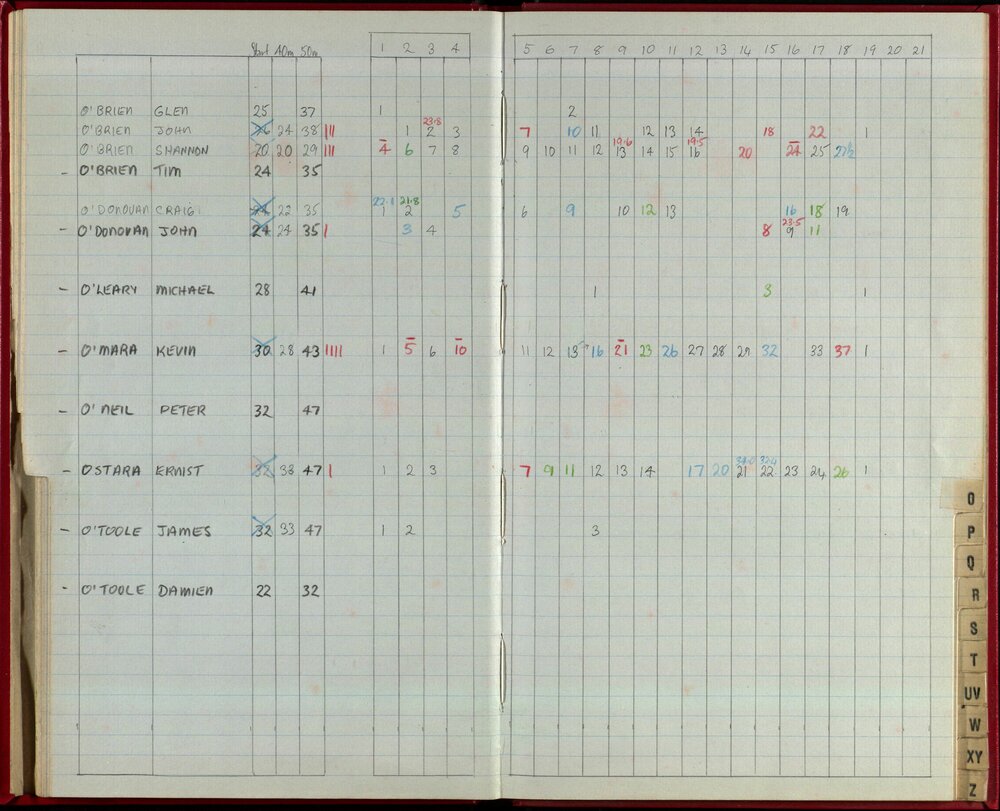 Start 40m 50m 1 2 3 4 5 6 7 8 9 10 11 12 13 14 15 16 17 18 19 20 21
O'BRIEN GLEN 25 37 1 2
23.8
O'BRIEN JOHN 24 38 III 1 2 3 7 10 11 12 13 14 18 22 1
19.6 19.5
O'BRIEN SHANNON 20 20 29 III 4 6 7 8 9 10 11 12 13 14 15 16 20 24 25 27½
- O'BRIEN TIM 24 35
22.1 21.8
O'DONOVAN CRAIG 24 22 35 1 2 5 6 9 10 12 13 16 18 19
23.5
- O'DONOVAN JOHN 24 24 35 I 3 4 8 9 11
- O'LEARY MICHAEL 28 41 1 3 1
- O'MARA KEVIN 30 28 43 IIII 1 5 6 10 11 12 13 16 21 23 26 27 28 29 32 33 37 1
- O'NEIL PETER 32 47
- OSTARA ERNIST 32 38 47 I 1 2 3 7 9 11 12 13 14 17 20 21 22 23 24 26 1
- O'TOOLE JAMES 32 33 47 1 2 3
- O'TOOLE DAMIEN 22 32
O
P
Q
R
S
T
UV
W
XY
Z